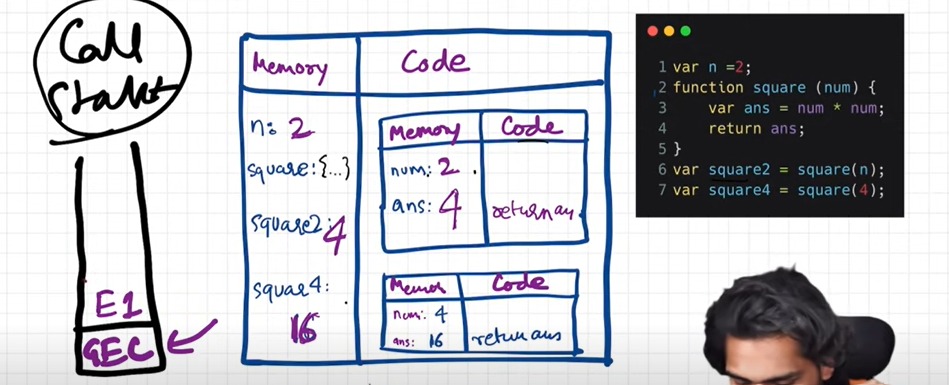 Call
Stakt
E1
GEC
Memory Code
n: 2
square:{...}
square2: 4
squar4:
16
Memory Code
num: 2
ans: 4 return an
Memor Code
num: 4
ans: 16 return ans
1 var n =2;
2 function square (num) {
3 var ans = num * num;
4 return ans;
5 }
6 var square2 = square(n);
7 var square4 = square(4);